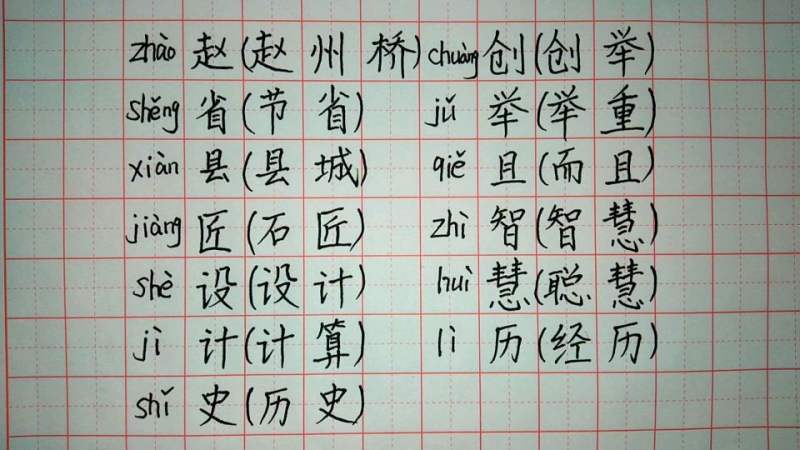 zhào 赵(赵州桥) chuàng 创(创举)
shěng 省(节省) jǔ 举(举重)
xiàn 县(县城) qiě 且(而且)
jiàng 匠(石匠) zhì 智(智慧)
shè 设(设计) huì 慧(聪慧)
jì 计(计算) lì 历(经历)
shǐ 史(历史)